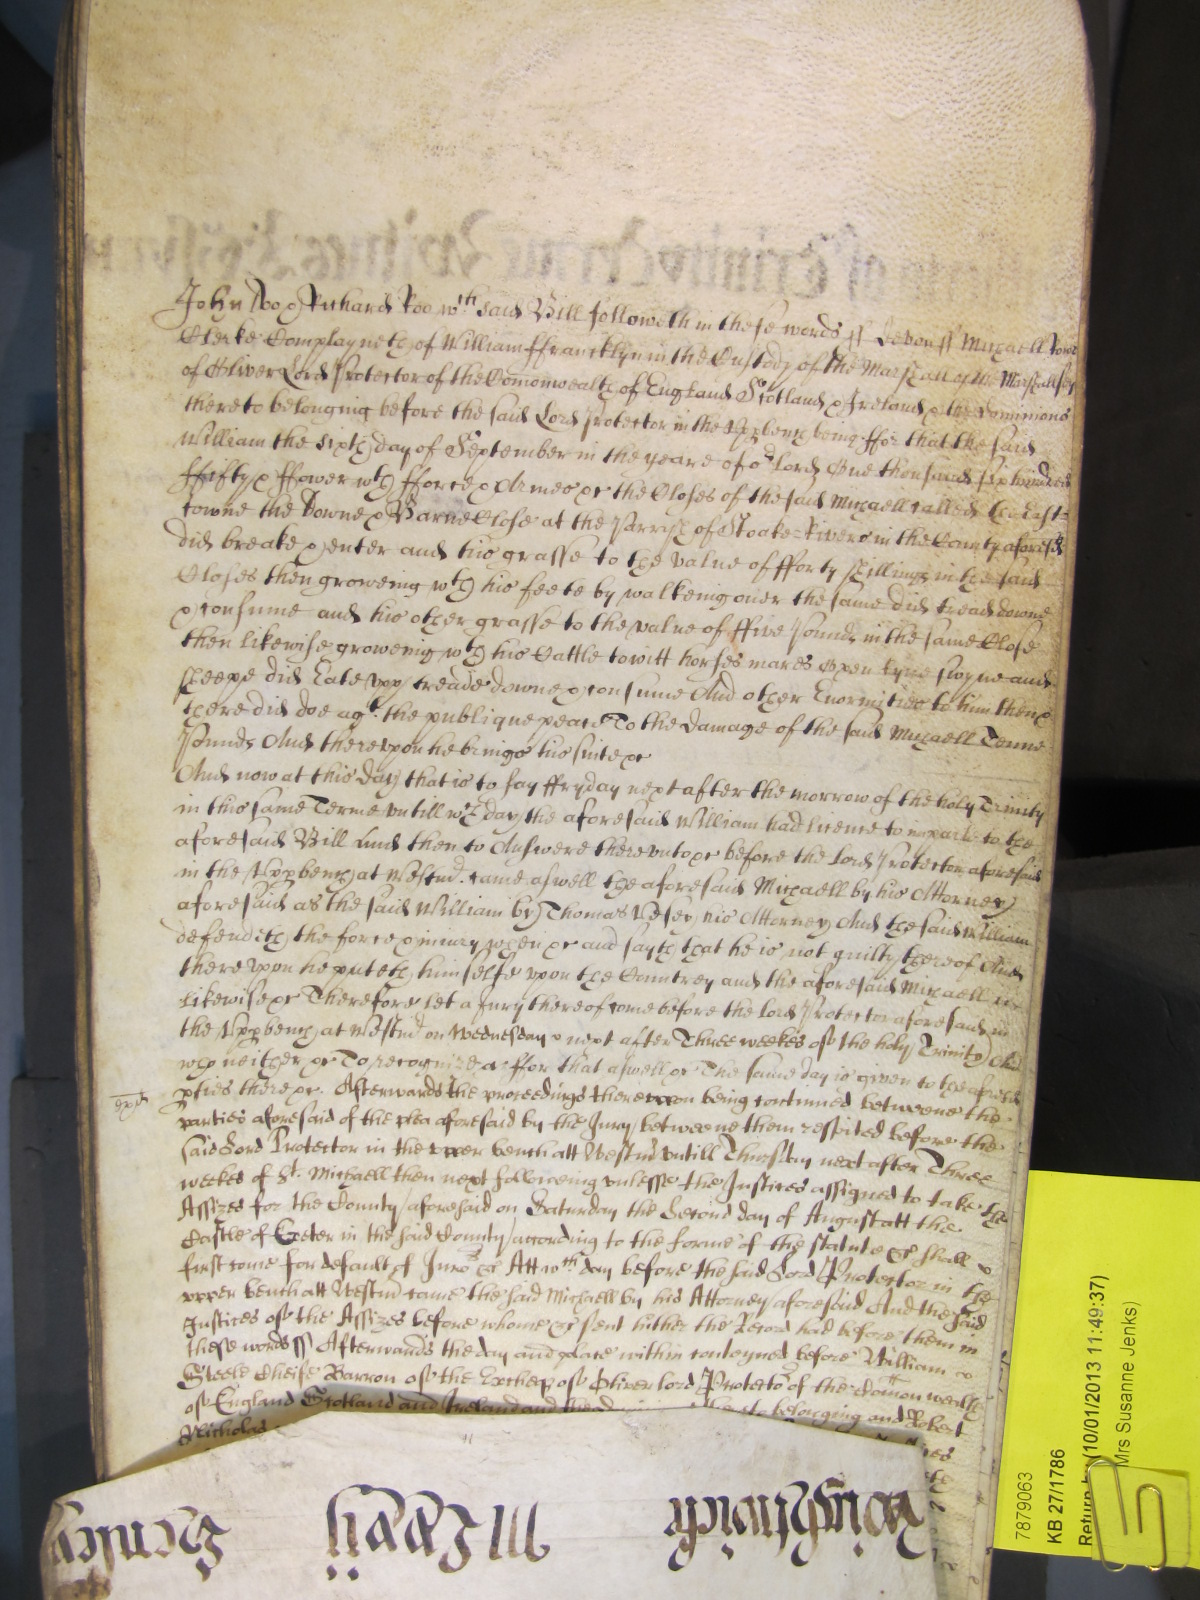 John Doo & Richard Roo wch said Bill followeth in these words ss Devon ss Michaell
Clerke Complayneth of William ffrancklyn in the Custody of the Marshall of the Marshallsey
of Oliver Lord Protector of the Comonwealth of England Scotland & Ireland & the dominions
thereto belonging before the said Lord Protector in the Vpp bench being ffor that the said
William the sixth day of September in the yeare of or Lord One thousand six hundred
ffifty & ffower wth fforce & Armes &c the Closes of the said Michaell called
towne the Downe & Barne Close at the Parrish of Stoake=Rivers in the County aforesd
did breake & enter and his grasse to the value of fforty shillings in the said
Closes then groweing wth his feete by walkeing over the same did tread downe
& consume and his other grasse to the value of ffive Pounds in the same Close
then likewise groweing wth his Cattle to witt horses mares oxen kyne swyne and
sheepe did Eate vpp treade downe & consume And other Enormities to him then &
there did doe agt the publique peace To the damage of the said Michaell Tenne
Pounds And therevpon he brings his suite &c
And now at this day that is to say ffryday next after the morrow of the holy Trinity
in this same Terme vntill wch day the aforesaid William had licence to imparle to the
aforesaid Bill And then to Answere therevnto &c before the Lord Protector aforesaid
in the Vpp bench at Westmr. came aswell the aforesaid Michaell by his Attorney
aforesaid as the said William by Thomas Vesey his Attorney And the said William
defendeth the force & iniury when &c and sayth that he is not guilty thereof And
therevpon he putteth himselfe vpon the Countrey and the aforesaid Michaell
likewise &c Therefore let a Jury thereof come before the Lord Protector aforesaid in
the Vpp bench at Westmr on Wednesday next after Three weekes of the holy Trinity And
who neither &c To recognize &c ffor that aswell &c The same day is given to the aforesd
pties there &c. Afterwards the proceedings therevpon being continued betweene the
parties aforesaid of the plea aforesaid by the Jury betweene them respited before the
said Lord Protector in the vpper bench att Westmr vntill Thursday next after Three
weekes of St. Michaell then next following vnlesse the Justices assigned to take the
Assizes for the County aforesaid on Saturday the Second day of August att the
Castle of Exeter in the said County according to the forme of the statute &c shall
first come for default of Juro's &c Att wch day before the said Lord Protector in the
vpper bench att Westmr came the said Michaell by his Attorney aforesaid And the said
Justices of the Assizes before whome &c sent hither the Record had before them in
these words ss Afterwards the day and place within conteyned before William
Steele Cheife Barron of the Excheqr of Oliver Lord Protector of the Comon wealth
of England Scotland and Ireland and the thereto belonging and Robert
Nicholas
Mlvij
7879063
KB 27/1786
Return by (10/01/2013 11:49:37)
Mrs Susanne Jenks)